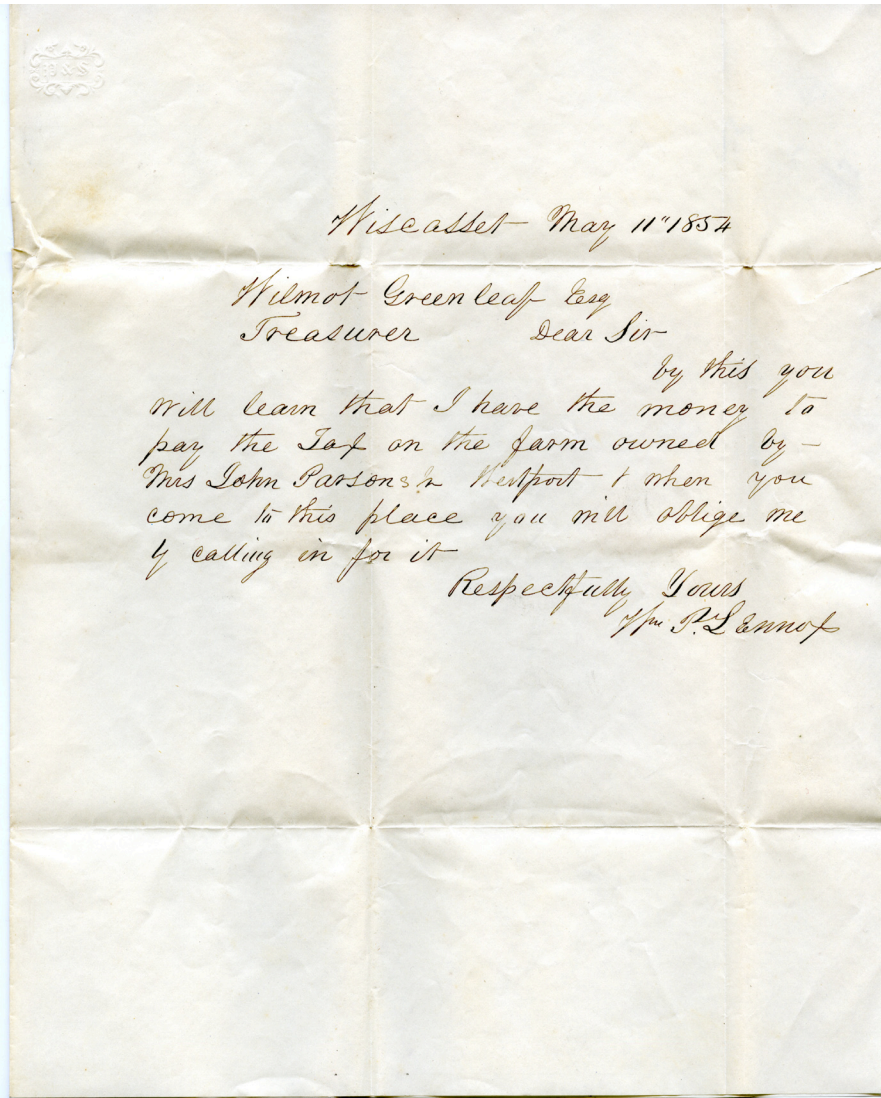 Wiscasset May 11" 1854
Wilmot Greenleaf Esq
Treasurer Dear Sir
by this you
will learn that I have the money to
pay the Tax on the farm owned by -
Mrs John Parsons in Westport & when you
come to this place you will oblige me
by calling in for it
Respectfully Yours
Wm P. Lennox